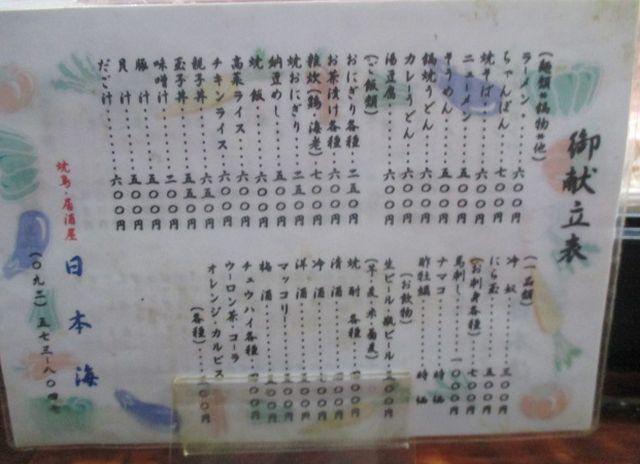 御献立表
(麺類・鍋物・他)
ラーメン・・・六〇〇円
ちゃんぽん・・・七〇〇円
焼そば・・・六〇〇円
ニューメン・・・五〇〇円
そうめん・・・五〇〇円
鍋焼うどん・・・六〇〇円
カレーうどん・・・六〇〇円
湯豆腐・・・六〇〇円
(ご飯類)
おにぎり各種・・・二五〇円
お茶漬け各種・・・六〇〇円
雑炊(鶏・海老)・・・七〇〇円
焼おにぎり・・・二五〇円
納豆めし・・・五〇〇円
焼飯・・・六〇〇円
高菜ライス・・・六〇〇円
チキンライス・・・六〇〇円
親子丼・・・六五〇円
玉子丼・・・五五〇円
味噌汁・・・二〇〇円
豚汁・・・五五〇円
貝汁・・・五五〇円
だご汁・・・六〇〇円
(一品類)
冷奴・・・三〇〇円
にら玉・・・五〇〇円
(お刺身各種)・・・七〇〇円
馬刺し・・・一〇〇〇円
ナマコ・・・時価
酢牡蠣・・・時価
(お飲物)
生ビール・瓶ビール・・・五〇〇円
(芋・麦・米・蕎麦)
焼酎各種・・・
清酒・・・
冷酒・・・
洋酒・・・
マッコリー・・・
梅酒・・・
チュウハイ各種
ウーロン茶・コーラ
オレンジ・カルピス
(各種)・・・
焼鳥・居酒屋
日本海
(〇九二)五七三-八〇四七